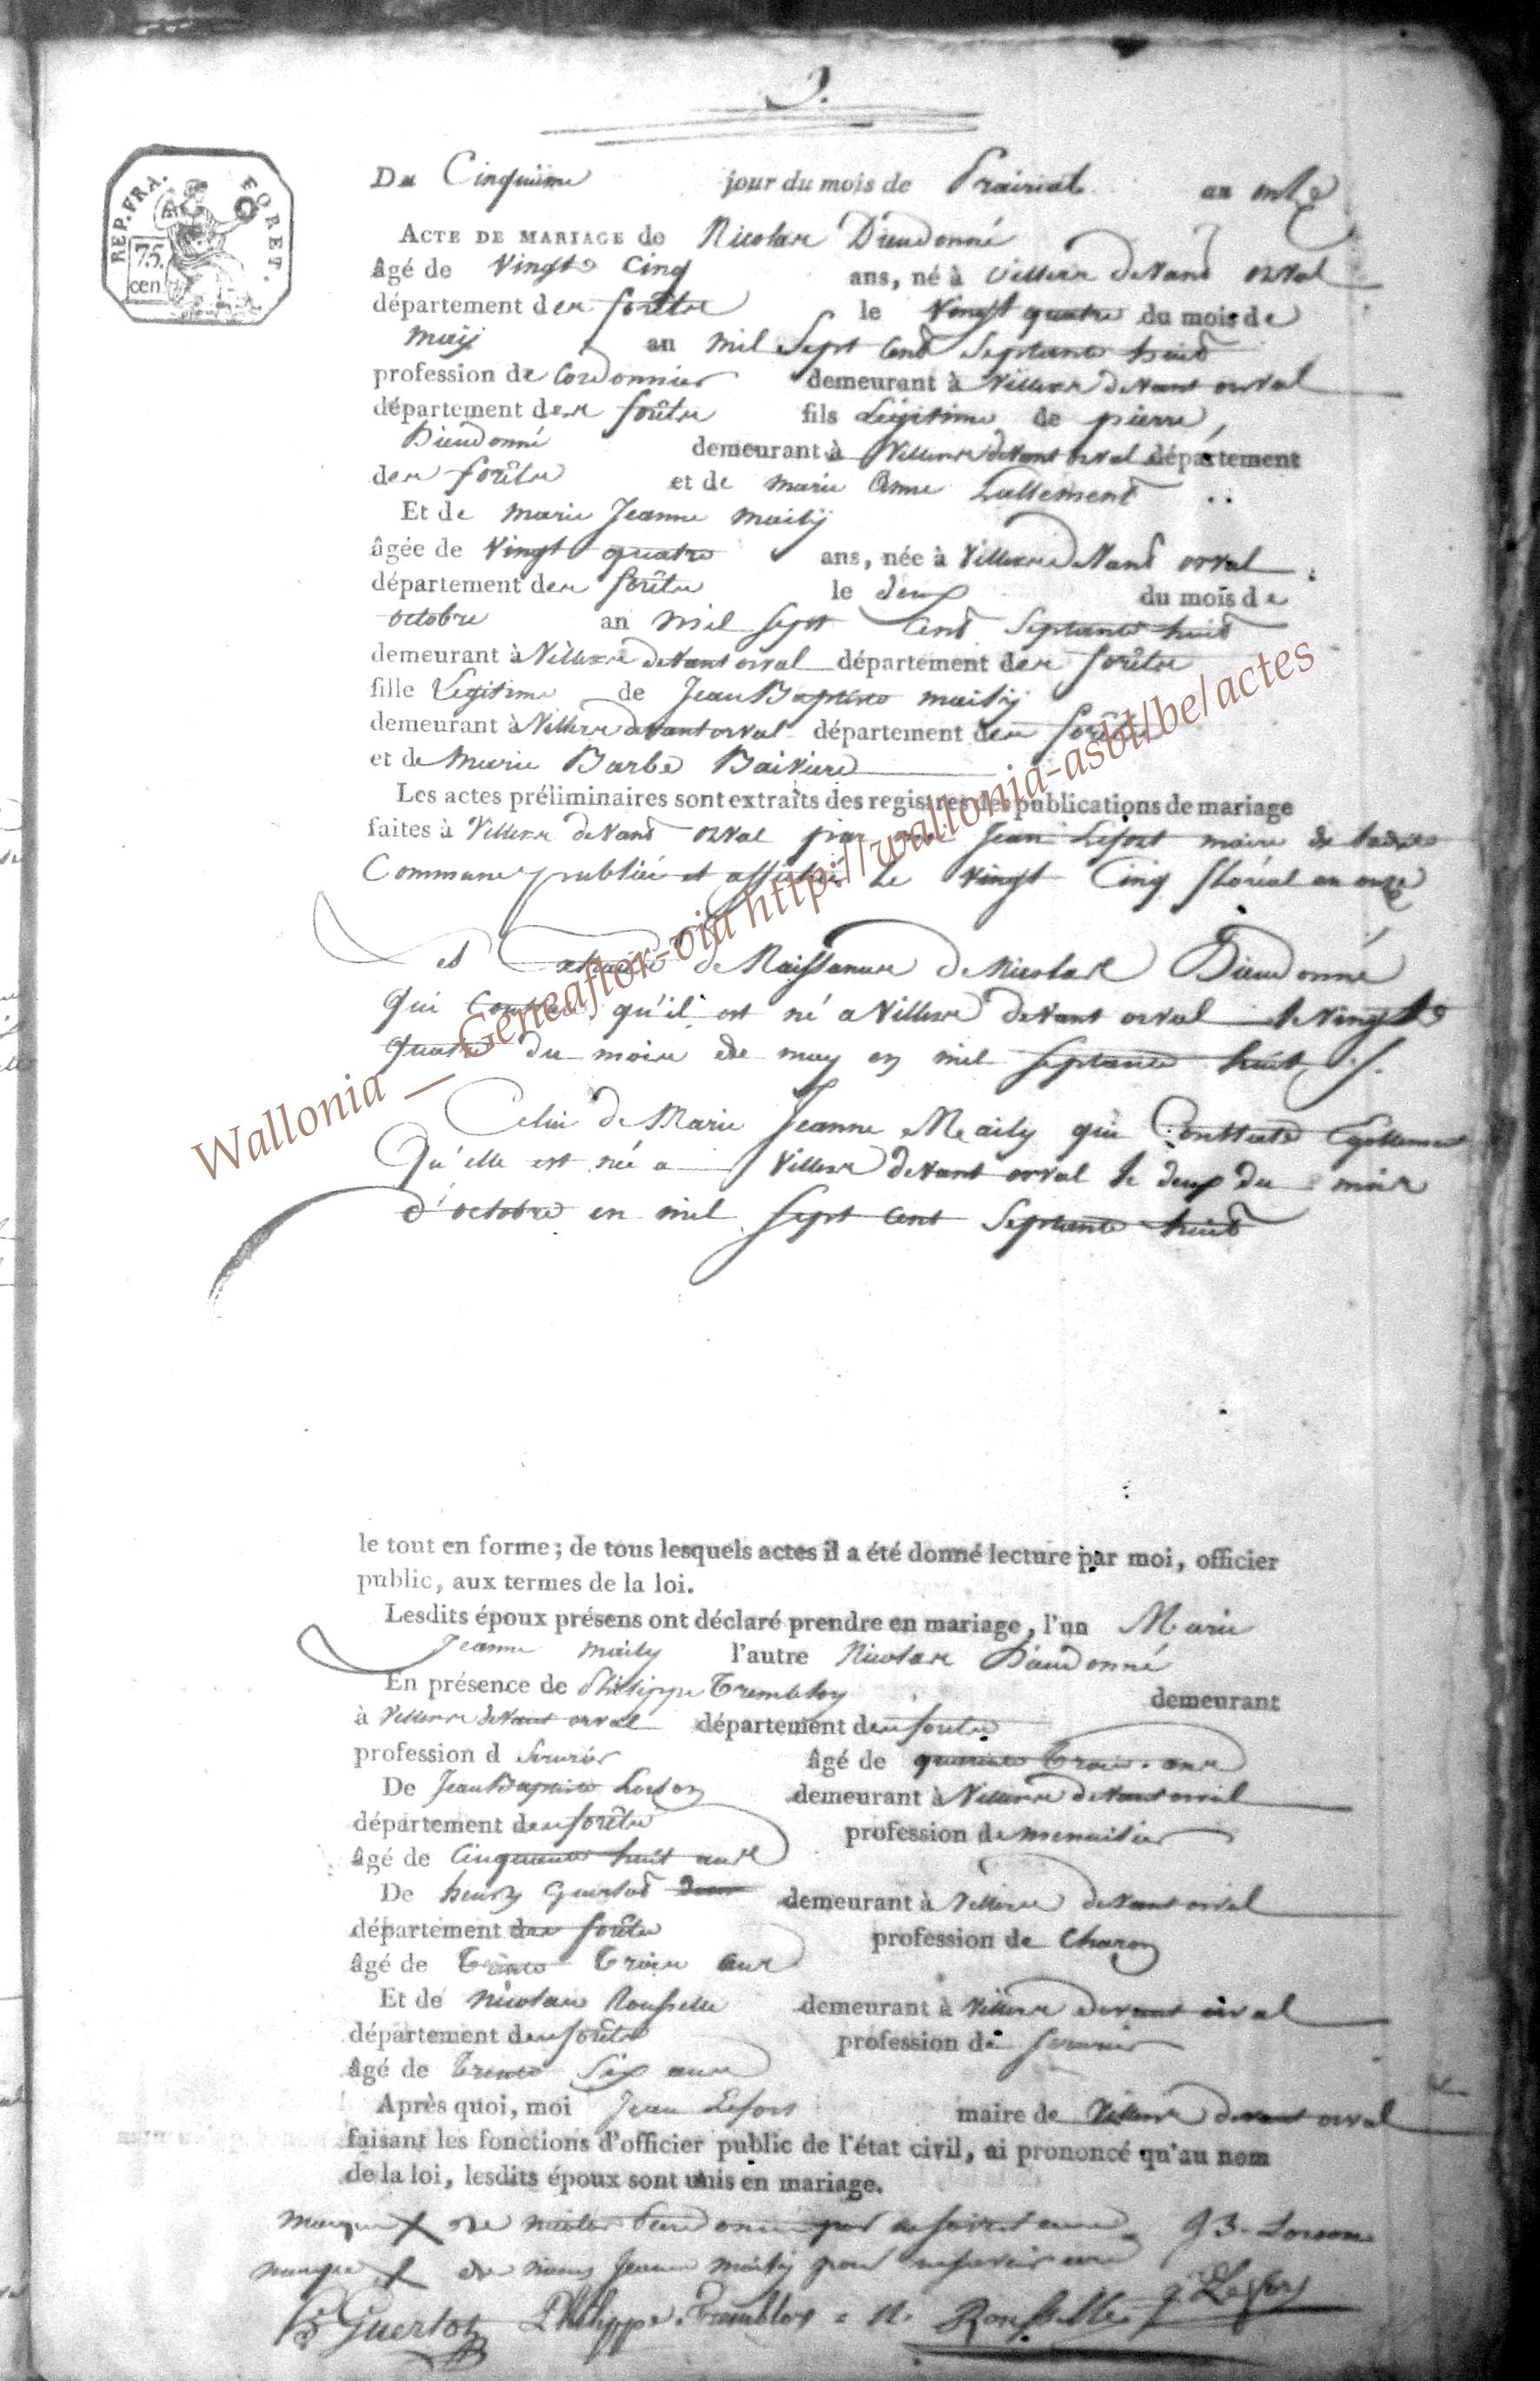 REP. FRA.
FORET.
75.
cen.
Du Cinquième jour du mois de Prairial an onze
ACTE DE MARIAGE de Nicolas Dieudonné
âgé de Vingt Cinq ans, né à Villers devant orval
département des forêts le Vingt quatre du mois de
may an mil Sept Cent Septante huit
profession de Cordonnier demeurant à Villers devant orval
département des forêts fils Légitime de pierre
Dieudonné demeurant à Villers devant orval département
des forêts et de marie Anne Lallement
Et de marie Jeanne maily
âgée de Vingt quatre ans, née à Villers devant orval
département des forêts le deux du mois de
octobre an mil sept Cent Septante huit
demeurant à Villers devant orval département des forêts
fille Legitime de Jean Baptiste maily
demeurant à Villers devant orval département des forêts
et de Marie Barbe Baiviere
Les actes préliminaires sont extraits des registres des publications de mariage
faites à Villers devant orval par moi Jean Lefort maire de ladite
Commune publiée et affichée Le Vingt Cinq floréal an onze
et Extrait de Naissance de Nicolas Dieudonné
Qui Constate qu'il est né a Villers devant orval le Vingt
Quatre du mois de may en mil septante huit
Celui de Marie Jeanne Maily qui Constate Egallement
Qu'elle est née a Villers devant orval le deux du mois
d'octobre en mil sept cent Septante huit
le tout en forme ; de tous lesquels actes il a été donné lecture par moi, officier
public, aux termes de la loi.
Lesdits époux présens ont déclaré prendre en mariage, l'un Marie
Jeanne maily l'autre Nicolas Dieudonné
En présence de Philippe Trembloy demeurant
à Villers devant orval département des forêts
profession d Serurier âgé de quarante Trois ans
De Jean Baptiste Lorson demeurant à Villers devant orval
département des forêts profession de menuisier
âgé de Cinquante huit ans
De henry Guertot demeurant à Villers devant orval
département des forêts profession de Charon
âgé de Trente Trois ans
Et de Nicolas Rousselle demeurant à Villers devant orval
département des forêts profession de serurier
âgé de Trente Six ans
Après quoi, moi Jean Lefort maire de Villers devant orval
faisant les fonctions d'officier public de l'état civil, ai prononcé qu'au nom
de la loi, lesdits époux sont unis en mariage.
marque X de nicolas dieudonné pour J B Lorson
marque X de marie Jeanne maily pour
Guertot Philippe Trembloy N. Rousselle J Lefort
Wallonia _ Geneaflor-via http://wallonia-asbl/be/actes